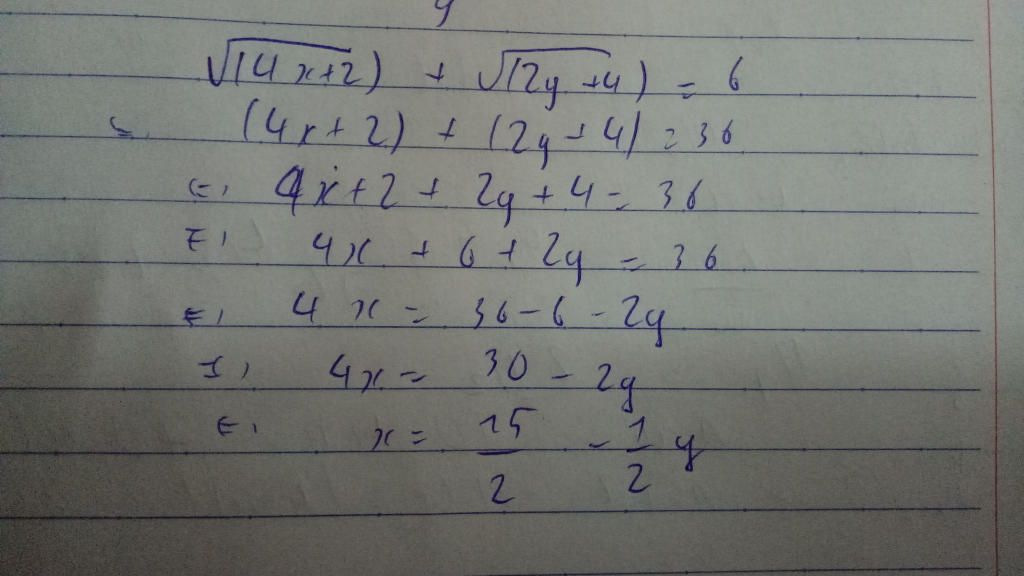 √(4x+2) + √(2y+4) = 6
(4x+2) + (2y+4) = 36
4x+2 + 2y+4 = 36
4x + 6 + 2y = 36
4x = 36-6-2y
4x = 30 - 2y
x = 15/2 - 1/2 y